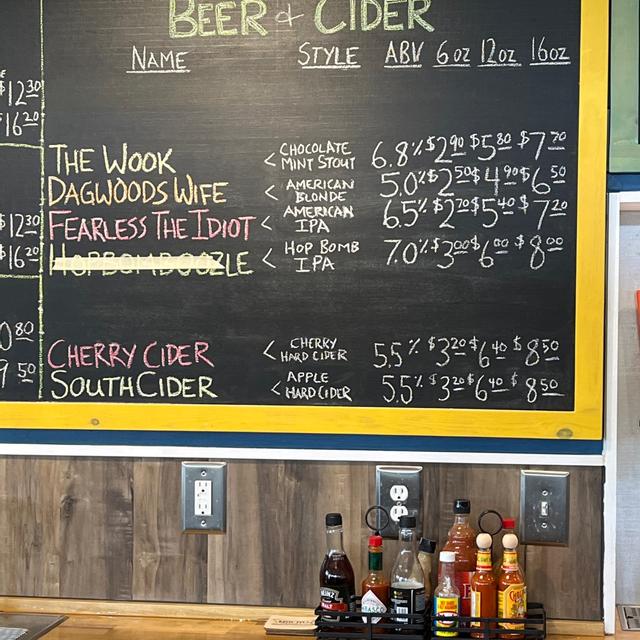 BEER & CIDER
NAME STYLE ABV 6oz 12oz 16oz
$12.30
$16.20
THE WOOK < CHOCOLATE MINT STOUT 6.8% $2.90 $5.80 $7.70
DAGWOODS WIFE < AMERICAN BLONDE 5.0% $2.50 $4.90 $6.50
FEARLESS THE IDIOT < AMERICAN IPA 6.5% $2.70 $5.40 $7.20
$12.30
HOPBOMBOOZLE < HOP BOMB IPA 7.0% $3.00 $6.00 $8.00
$16.20
0.80
CHERRY CIDER < CHERRY HARD CIDER 5.5% $3.20 $6.40 $8.50
9.50
SOUTHCIDER < APPLE HARD CIDER 5.5% $3.20 $6.40 $8.50
HEINZ
MALT
TABASCO
Cholula